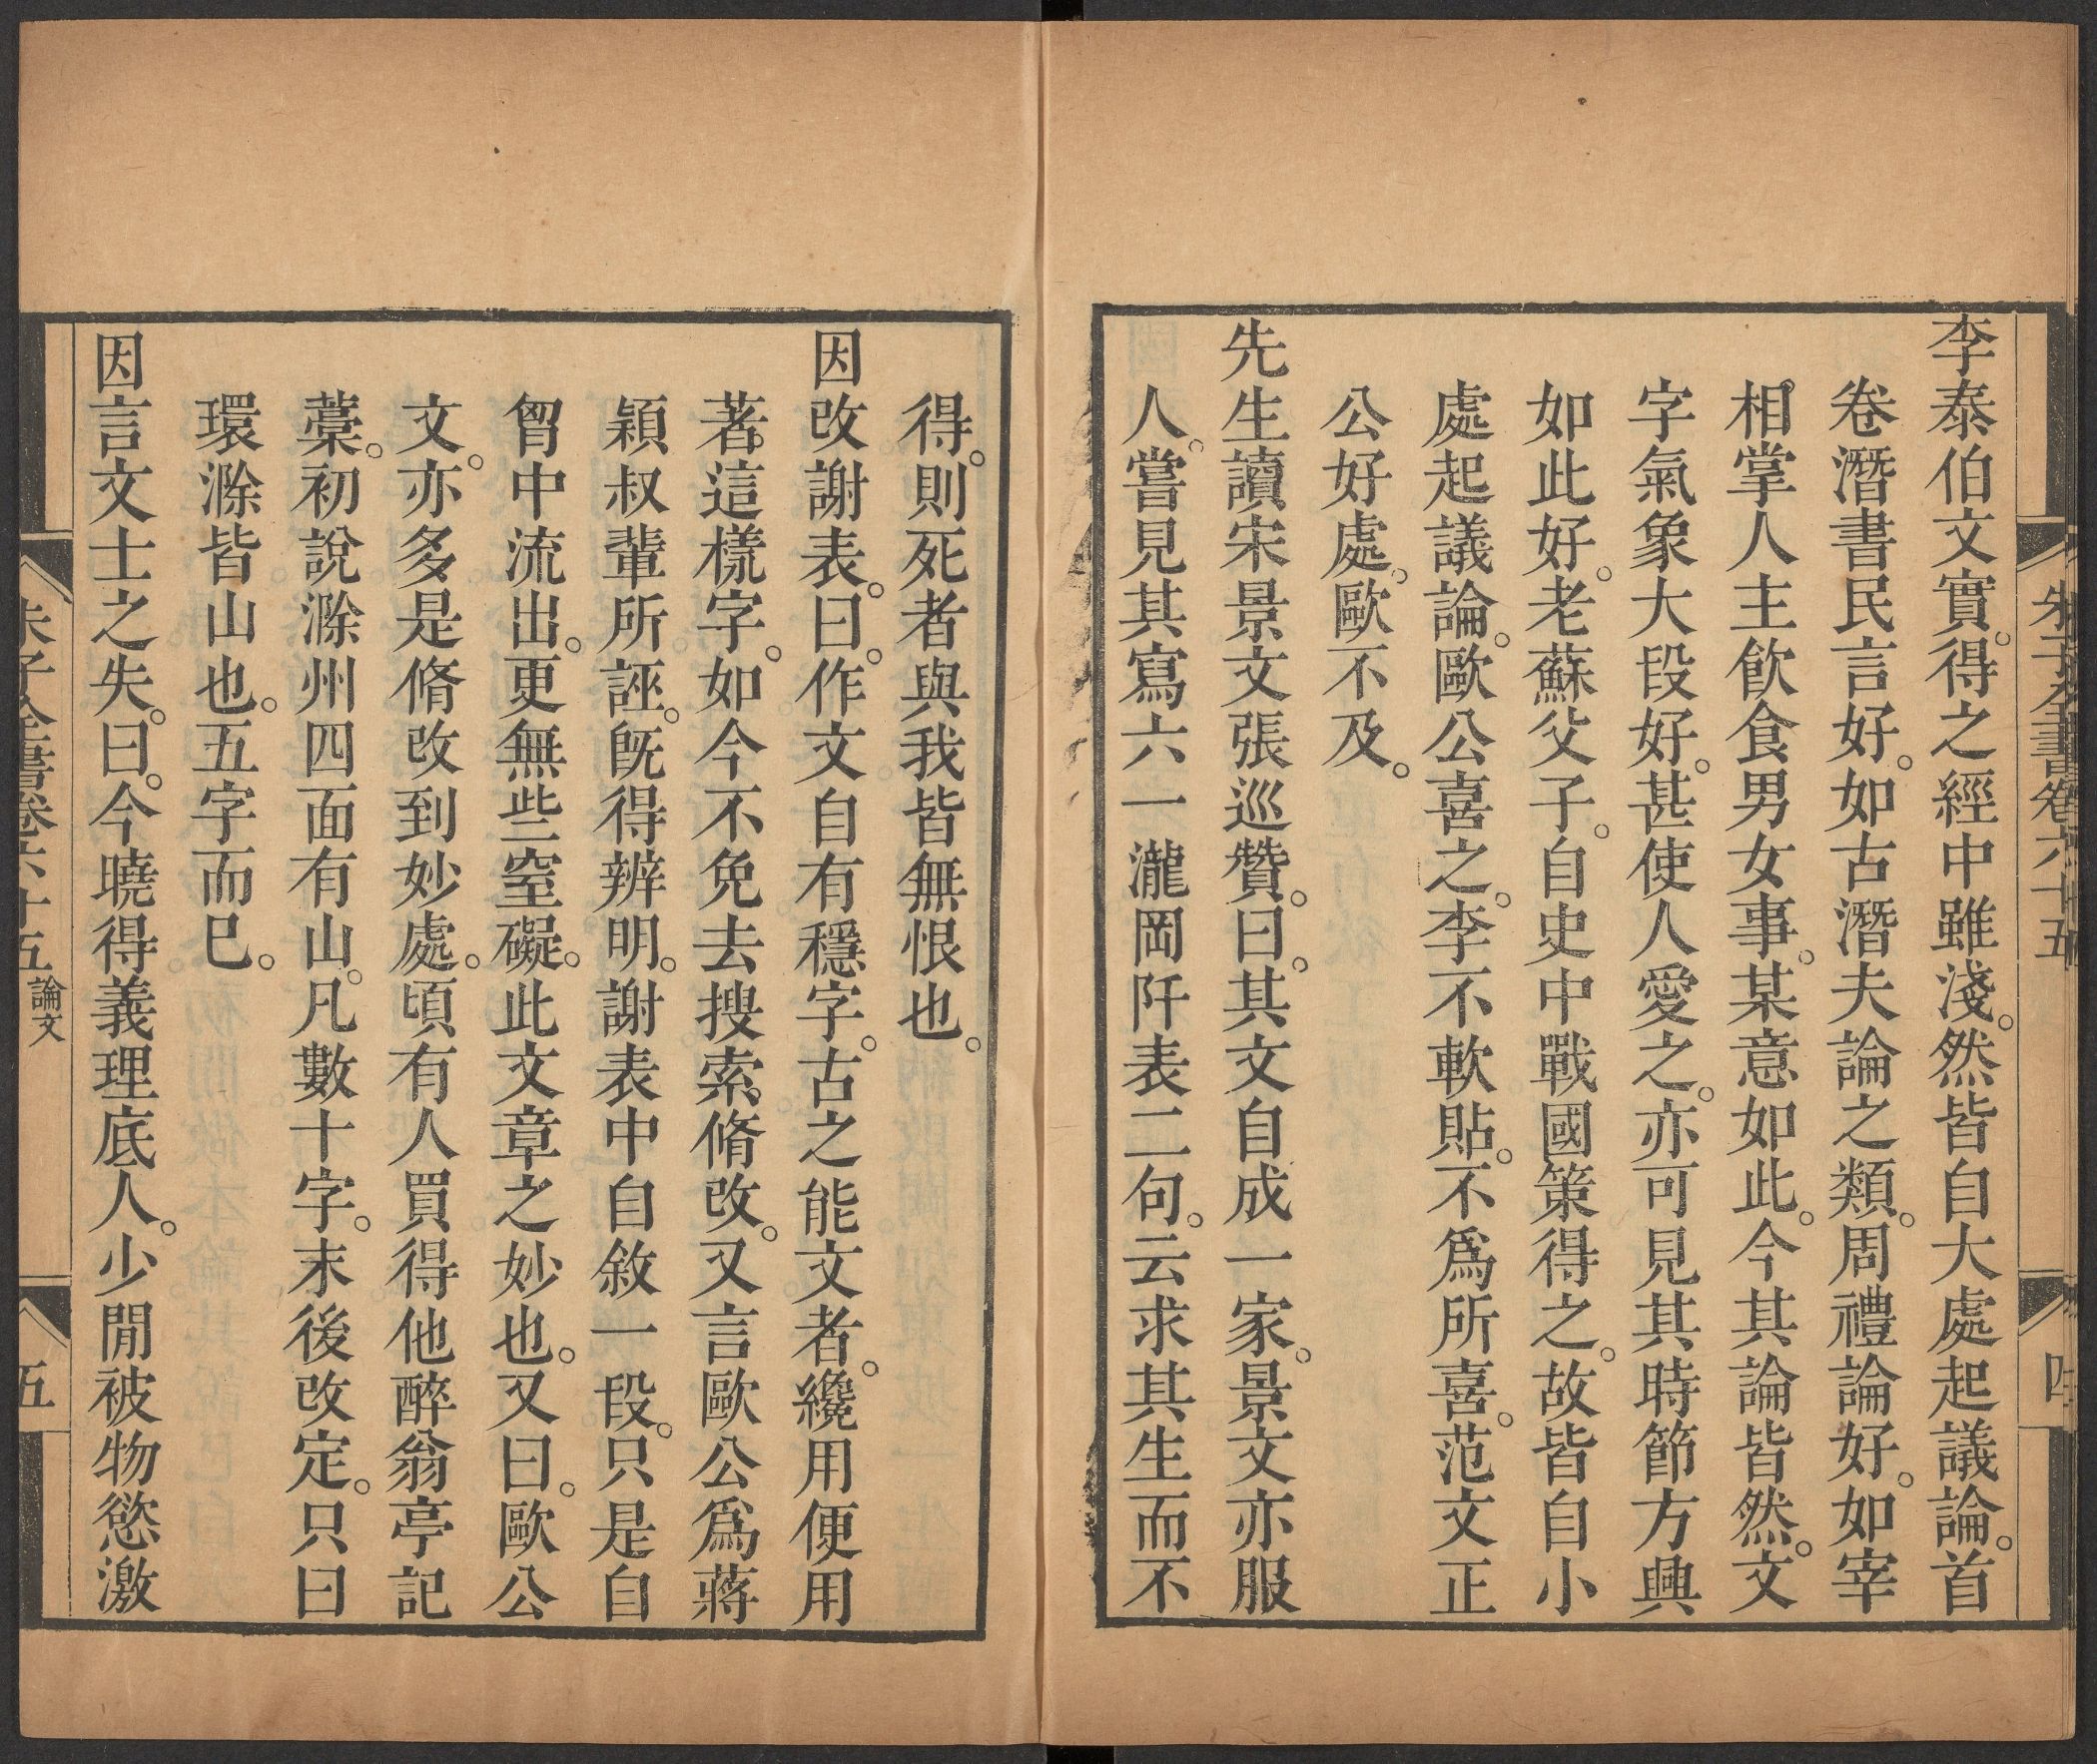 朱子全書卷六十五
四
李泰伯文實。得之經中雖淺。然皆自大處起議論。首
卷潛書民言好。如古潛夫論之類。周禮論好。如宰
相掌人主飲食男女事。某意如此。今其論皆然。文
字氣象大段好。甚使人愛之。亦可見其時節方興
如此好。老蘇父子。自史中戰國策得之。故皆自小
處起議論。歐公喜之。李不軟貼。不爲所喜。范文正
公好處。歐不及。
先生讀宋景文張巡贊。曰。其文自成一家。景文亦服
人。嘗見其寫六一瀧岡阡表二句。云求其生而不
得。則死者與我皆無恨也。
因改謝表。曰。作文自有穩字。古之能文者。纔用便用
著這樣字。如今不免去搜索。脩改。又言歐公爲蔣
穎叔輩所誣。旣得辨明。謝表中自敘一段。只是自
胷中流出。更無些窒礙。此文章之妙也。又曰。歐公
文。亦多是脩改到妙處。頃有人買得他醉翁亭記
藁。初說滁州四面有山。凡數十字。末後改定。只曰
環滁皆山也。五字而已。
因言文士之失。曰。今曉得義理底人。少閒被物慾激
朱子全書卷六十五 論文
五